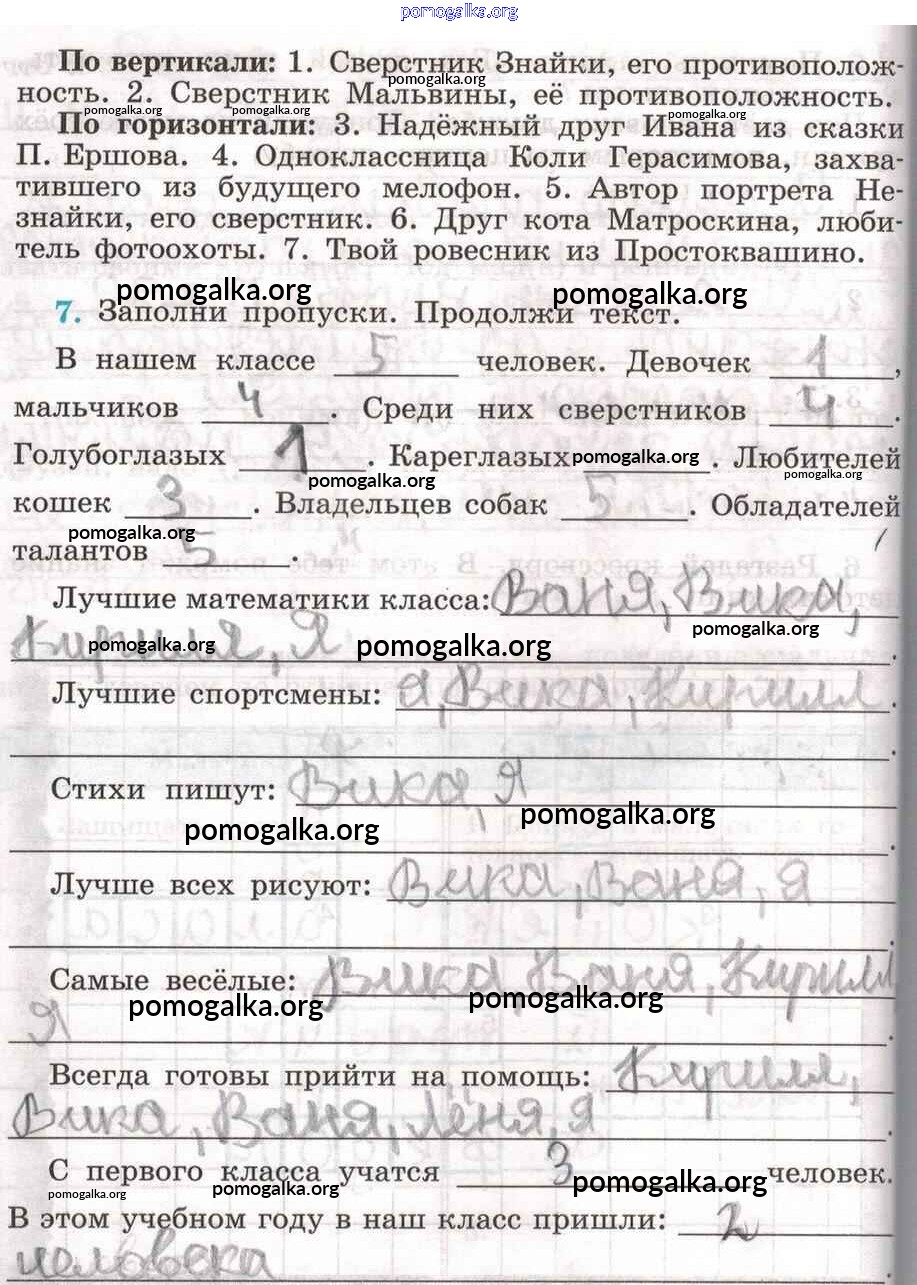 pomogalka.org
По вертикали: 1. Сверстник Знайки, его противополож-
pomogalka.org
ность. 2. Сверстник Мальвины, её противоположность.
pomogalka.org pomogalka.org pomogalka.org
По горизонтали: 3. Надёжный друг Ивана из сказки
П. Ершова. 4. Одноклассница Коли Герасимова, захва-
тившего из будущего мелофон. 5. Автор портрета Не-
знайки, его сверстник. 6. Друг кота Матроскина, люби-
тель фотоохоты. 7. Твой ровесник из Простоквашино.
pomogalka.org pomogalka.org
7. Заполни пропуски. Продолжи текст.
В нашем классе 5 человек. Девочек 1,
мальчиков 4. Среди них сверстников 4.
Голубоглазых 1. Кареглазых pomogalka.org. Любителей
pomogalka.org pomogalka.org
кошек 3. Владельцев собак 5. Обладателей
pomogalka.org
талантов 5.
Лучшие математики класса: Ваня, Вика,
pomogalka.org
Кирилл, Я
pomogalka.org pomogalka.org
Лучшие спортсмены: Я, Вика, Кирилл.
Стихи пишут: Вика, Я
pomogalka.org pomogalka.org
Лучше всех рисуют: Вика, Ваня, я
Самые весёлые: Вика, Ваня, Кирилл
pomogalka.org pomogalka.org
Я.
Всегда готовы прийти на помощь: Кирилл,
Вика, Ваня, Лёня, я.
С первого класса учатся 3 человек.
pomogalka.org pomogalka.org pomogalka.org
В этом учебном году в наш класс пришли: 2
человека.